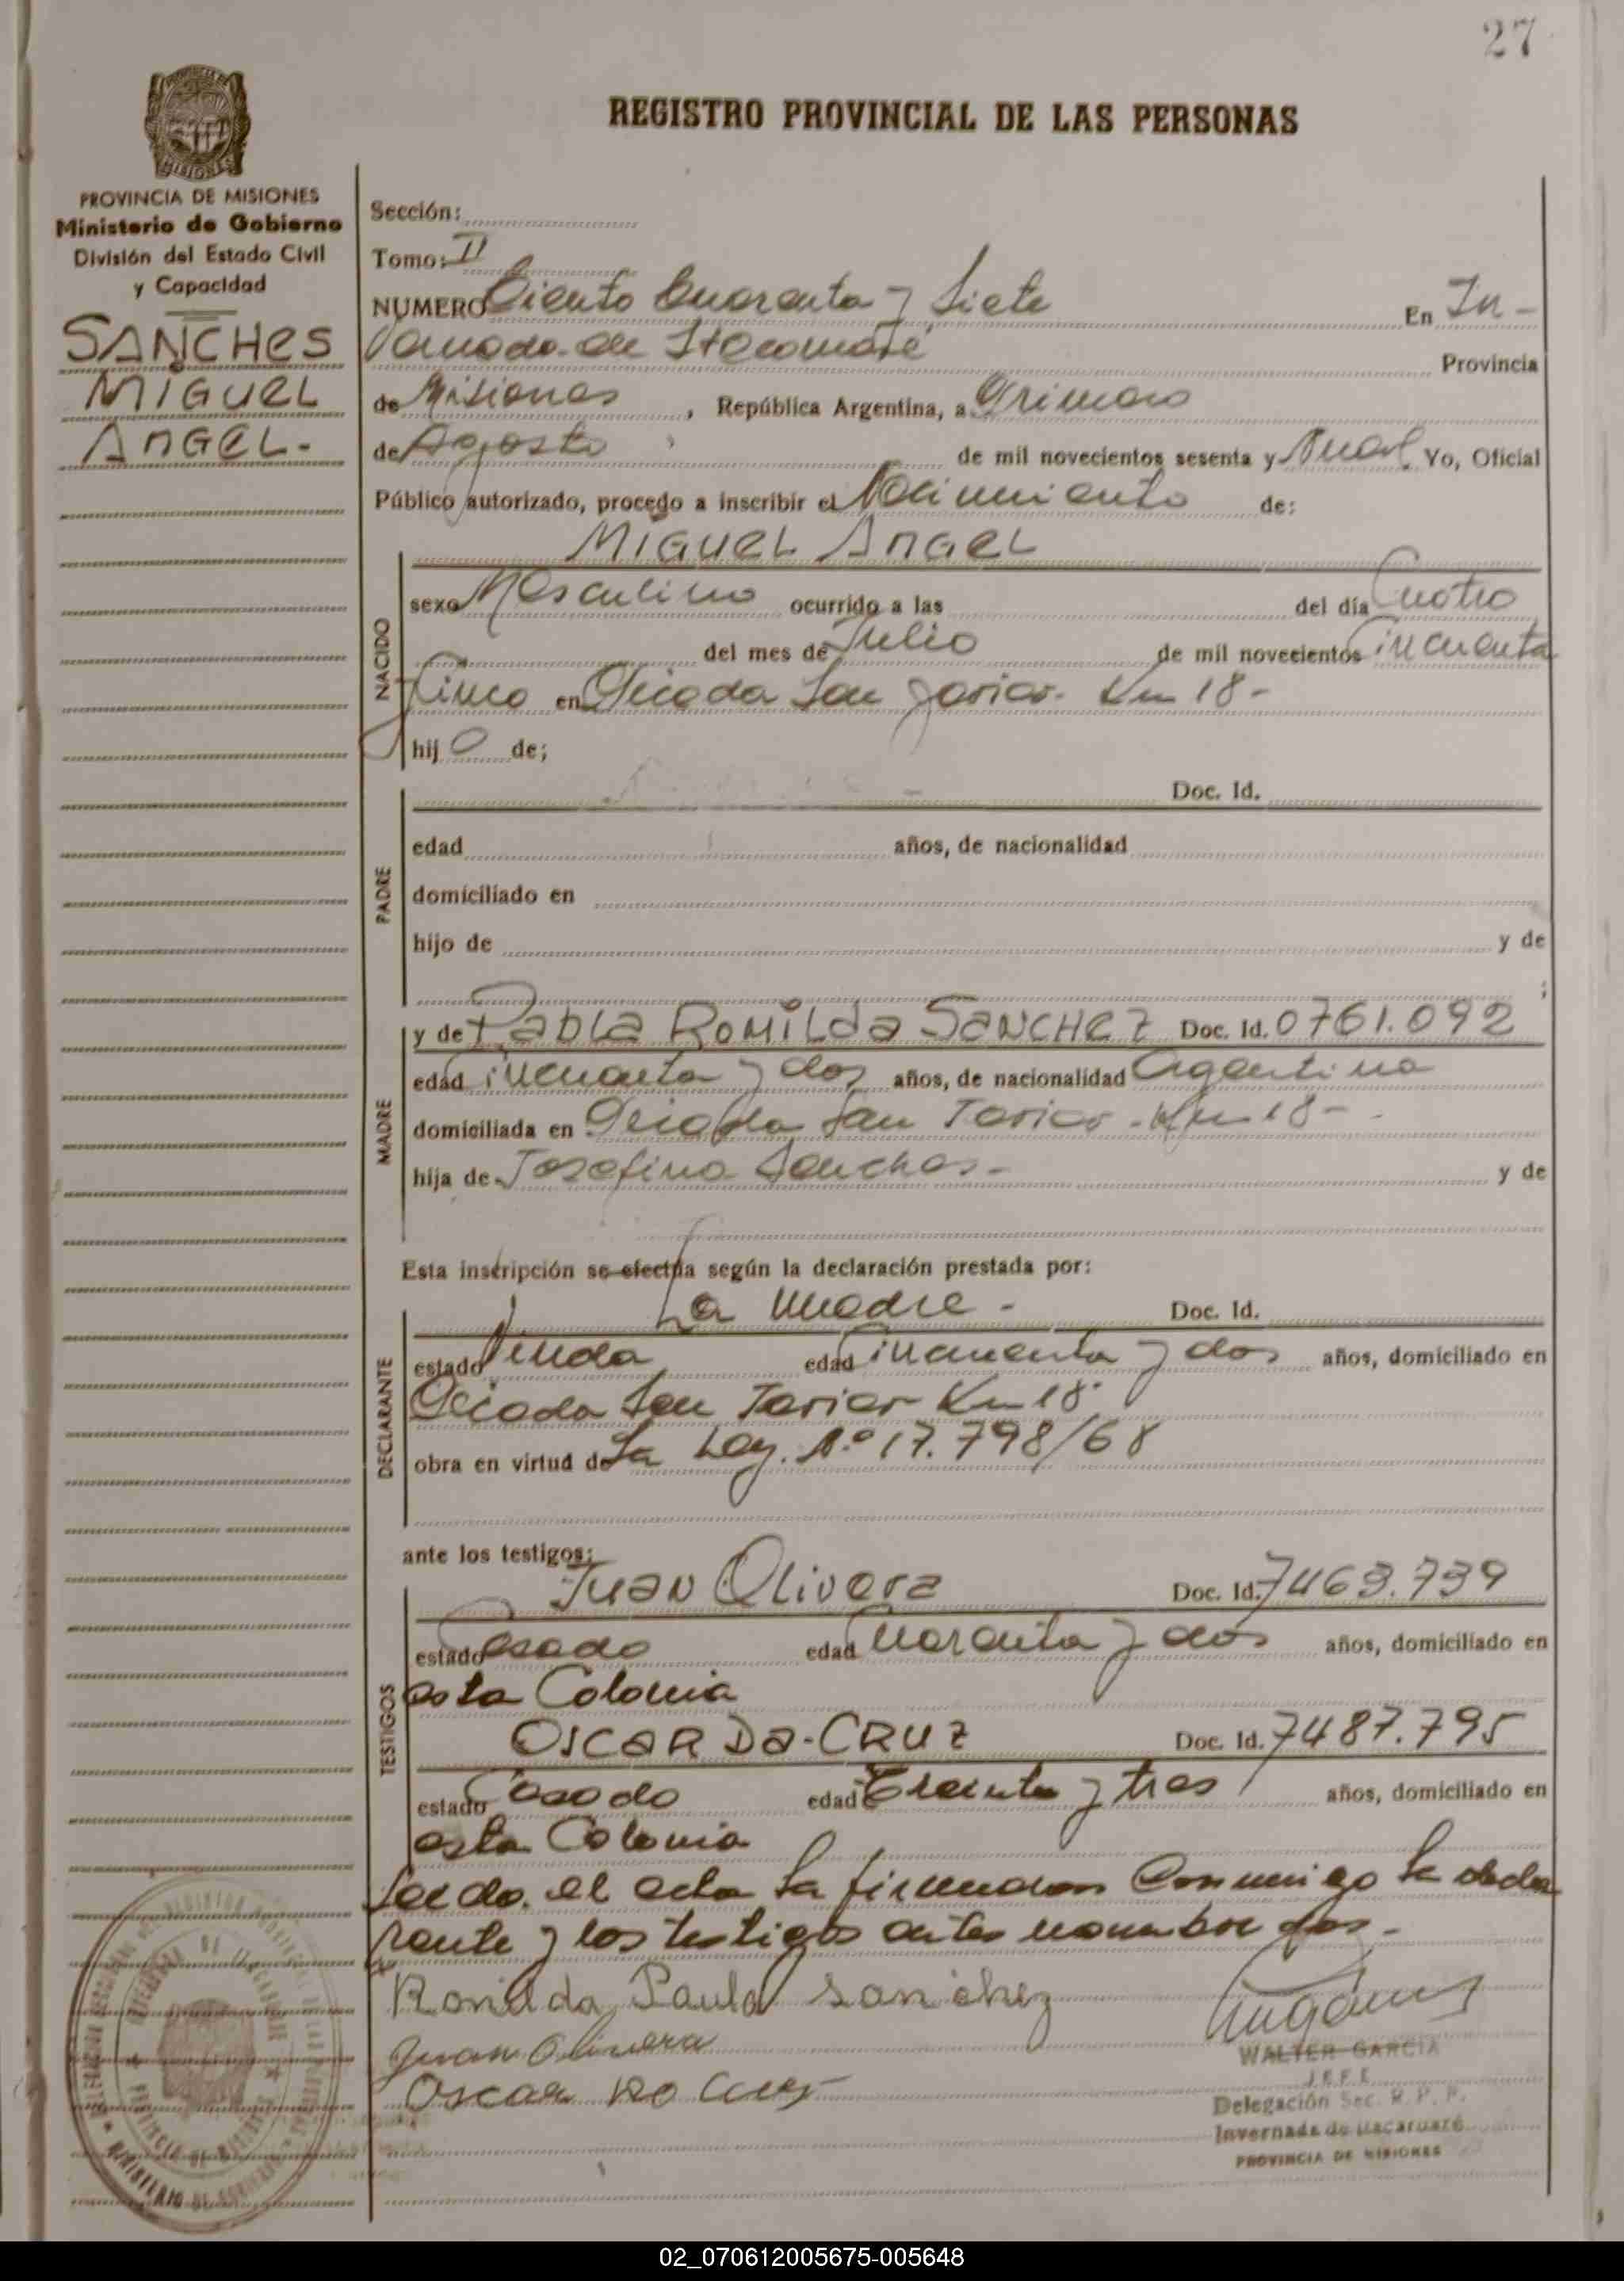 27
REGISTRO PROVINCIAL DE LAS PERSONAS
PROVINCIA DE MISIONES
Ministerio de Gobierno
División del Estado Civil
y Capacidad
SANCHES
MIGUEL
ANGEL.-
Sección:
Tomo: II
NUMERO Ciento Cuarenta y Siete En In-
vernada de Itacaruaré Provincia
de Misiones, República Argentina, a Primero
de Agosto de mil novecientos sesenta y Yo, Oficial
Público autorizado, procedo a inscribir el Nacimiento de:
MIGUEL ANGEL
NACIDO
sexo Masculino ocurrido a las del día Cuatro
del mes de Julio de mil novecientos Cincuenta
Cinco en Picada San Javier. Km 18-
hijo de;
PADRE
Doc. Id.
edad años, de nacionalidad
domiciliado en
hijo de y de
;
MADRE
y de Pabla Romilda Sanchez Doc. Id. 0761.092
edad Cincuenta y dos años, de nacionalidad Argentina
domiciliada en Picada San Javier - Km 18-
hija de Josefina Sanches- y de
Esta inscripción se efectúa según la declaración prestada por:
DECLARANTE
La Madre - Doc. Id.
estado Viuda edad Cincuenta y dos años, domiciliado en
Picada San Javier Km 18
obra en virtud de La Ley. Nº 17.798/68
ante los testigos:
TESTIGOS
Juan Olivera Doc. Id. 7463.739
estado Casado edad Cuarenta y dos años, domiciliado en
esta Colonia
OSCAR DA-CRUZ Doc. Id. 7487.795
estado Casado edad Treinta y tres años, domiciliado en
esta Colonia
Leido. el acta La firmaron Conmigo la decla
rante y los testigos antes nombrados.-
Romilda Paula Sanchez
Juan Olivera
Oscar Da Cruz
WALTER GARCIA
JEFE
Delegación Sec. R. P. P.
Invernada de Itacaruaré
PROVINCIA DE MISIONES
02_070612005675-005648